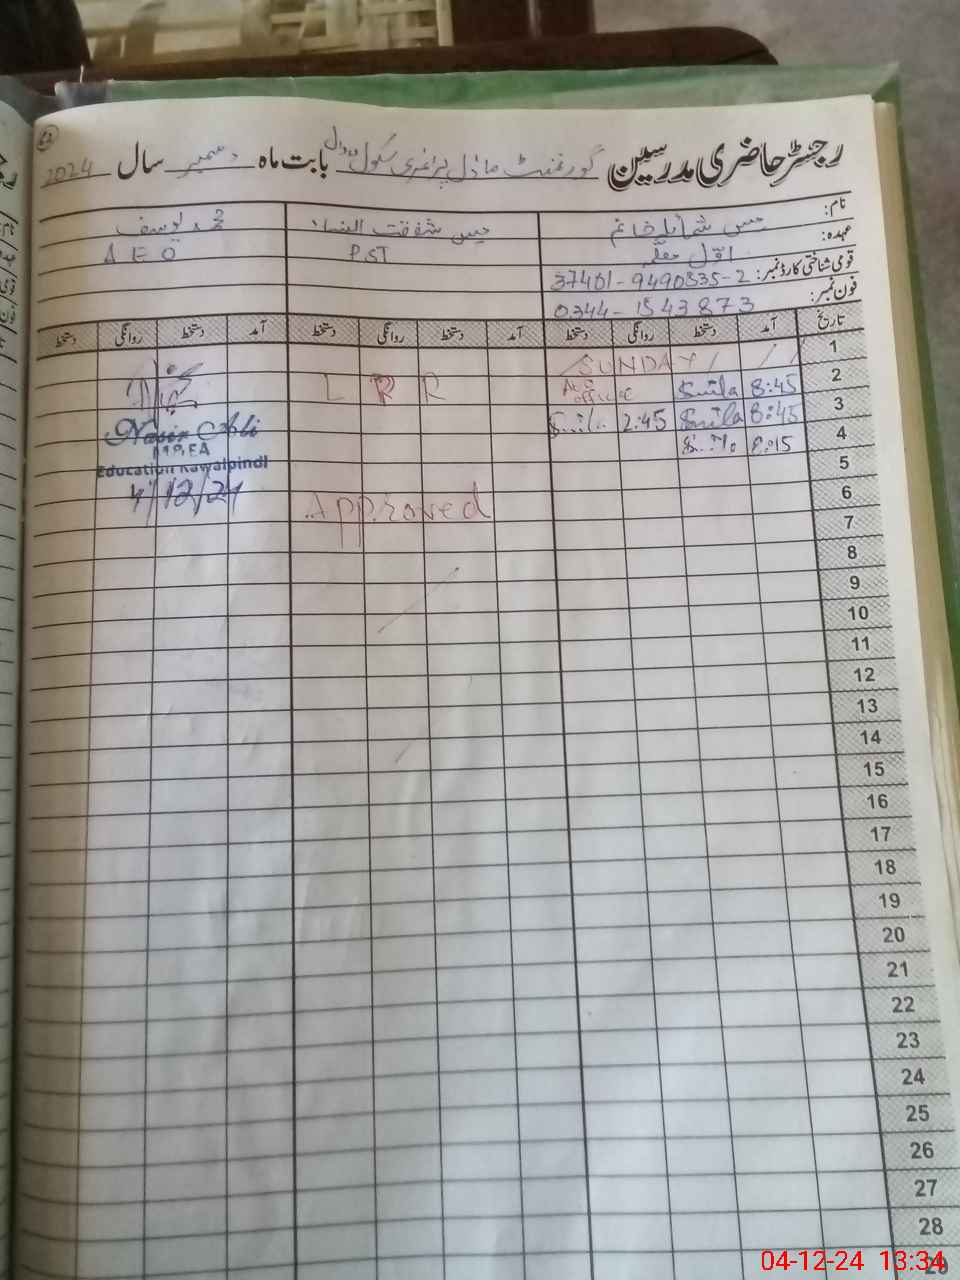 62
رجسٹر حاضری مدرسین گورنمنٹ ماڈل پرائمری سکول بابت ماہ دسمبر سال 2024
نام: مس شمائلہ خانم مس شفقت النساء محمد یوسف
عہدہ: اول معلمہ PST A E O
قومی شناختی کارڈ نمبر: 37401-9490835-2
فون نمبر: 0344-1543873
تاریخ آمد دستخط روانگی دستخط آمد دستخط روانگی دستخط آمد دستخط روانگی دستخط
1 SUNDAY
2 8:45 Smila office L R R
3 8:45 Smila 2:45 Smila Nasir Ali
4 8:15 Smila EA
5 Education Rawalpindi
6 Approved 4/12/24
7
8
9
10
11
12
13
14
15
16
17
18
19
20
21
22
23
24
25
26
27
28
29
04-12-24 13:34